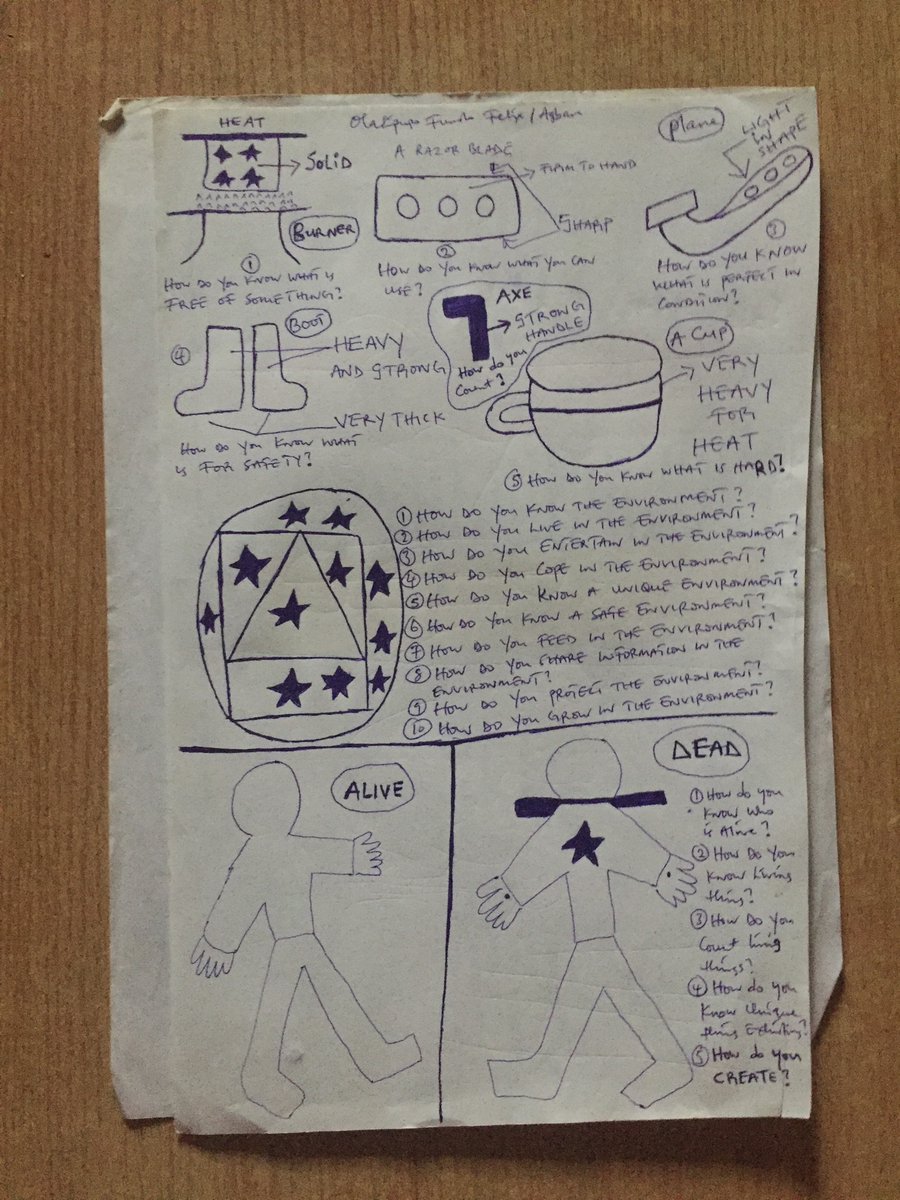 HEAT
SOLID
BURNER
①
HOW DO YOU KNOW WHAT IS
FREE OF SOMETHING?
Felix / Agban
A RAZOR BLADE
FIRM TO HAND
SHARP
②
HOW DO YOU KNOW WHAT YOU CAN
USE?
Plane
LIGHT
IN
SHAPE
③
HOW DO YOU KNOW
WHAT IS PERFECT IN
CONDITION?
④
BOOT
HEAVY
AND STRONG
VERY THICK
HOW DO YOU KNOW WHAT
IS FOR SAFETY?
AXE
STRONG
HANDLE
How do you
Count?
A CUP
VERY
HEAVY
FOR
HEAT
⑤ HOW DO YOU KNOW WHAT IS HARD?
① HOW DO YOU KNOW THE ENVIRONMENT?
② HOW DO YOU LIVE IN THE ENVIRONMENT?
③ HOW DO YOU ENTERTAIN IN THE ENVIRONMENT?
④ HOW DO YOU COPE IN THE ENVIRONMENT?
⑤ HOW DO YOU KNOW A UNIQUE ENVIRONMENT?
⑥ HOW DO YOU KNOW A SAFE ENVIRONMENT?
⑦ HOW DO YOU FEED IN THE ENVIRONMENT?
⑧ HOW DO YOU SHARE INFORMATION IN THE
ENVIRONMENT?
⑨ HOW DO YOU PROTECT THE ENVIRONMENT?
⑩ HOW DO YOU GROW IN THE ENVIRONMENT?
ALIVE
DEAD
① How do you
Know Who
is Alive?
② How Do You
Know Living
thing?
③ How Do You
Count living
things?
④ How do you
Know Unique
thing Existing?
⑤ How do you
CREATE?